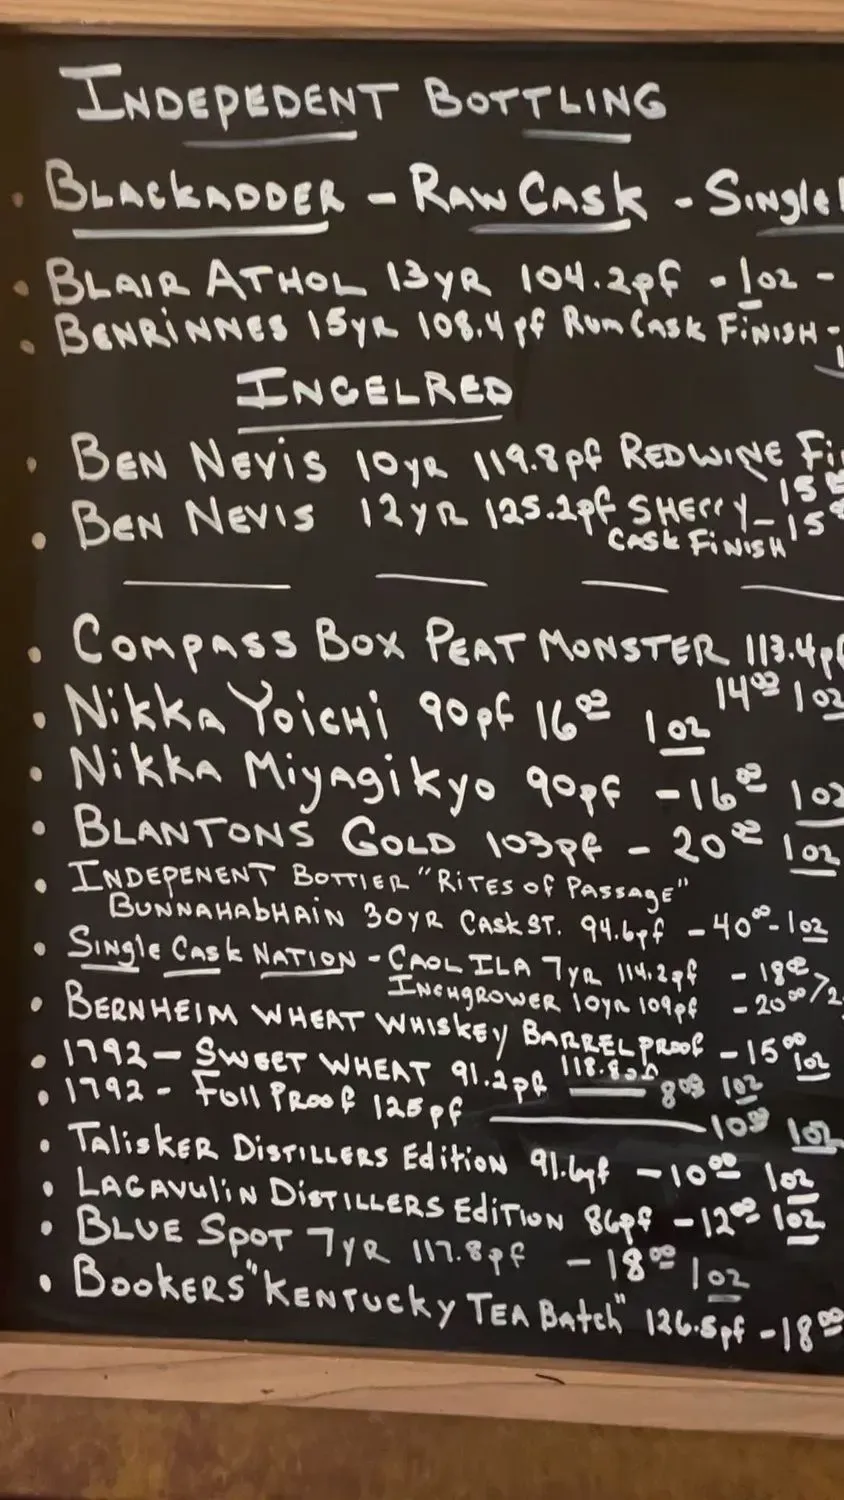 INDEPEDENT BOTTLING
• BLACKADDER - RAW CASK - SINGLE
• BLAIR ATHOL 13YR 104.2pf - 1oz -
• BENRINNES 15YR 108.4pf RUM CASK FINISH -
INGELRED
• BEN NEVIS 10YR 119.8pf REDWINE Fi
15
• BEN NEVIS 12YR 125.2pf SHERRY - 15
CASK FINISH
• COMPASS BOX PEAT MONSTER 113.4pf
14⁰⁰ 1oz
• NIKKA YOICHI 90pf 16⁰⁰ 1oz
• NIKKA MIYAGIKYO 90pf - 16⁰⁰ 1oz
• BLANTONS GOLD 103pf - 20⁰⁰ 1oz
• INDEPENENT BOTTLER "RITES OF PASSAGE"
BUNNAHABHAIN 30YR CASK ST. 94.6pf - 40⁰⁰ - 1oz
• SINGLE CASK NATION - CAOL ILA 7YR 114.2pf - 18⁰⁰
INCHGROWER 10YR 109pf - 20⁰⁰
• BERNHEIM WHEAT WHISKEY BARREL PROOF - 15⁰⁰ 1oz
118.8pf
• 1792 - SWEET WHEAT 91.2pf — 8⁰⁰ 1oz
• 1792 - FULL PROOF 125pf — 10⁰⁰ 1oz
• TALISKER DISTILLERS EDITION 91.6pf - 10⁰⁰ 1oz
• LAGAVULIN DISTILLERS EDITION 86pf - 12⁰⁰ 1oz
• BLUE SPOT 7YR 117.8pf - 18⁰⁰ 1oz
• BOOKERS "KENTUCKY TEA BATCH" 126.5pf - 18⁰⁰